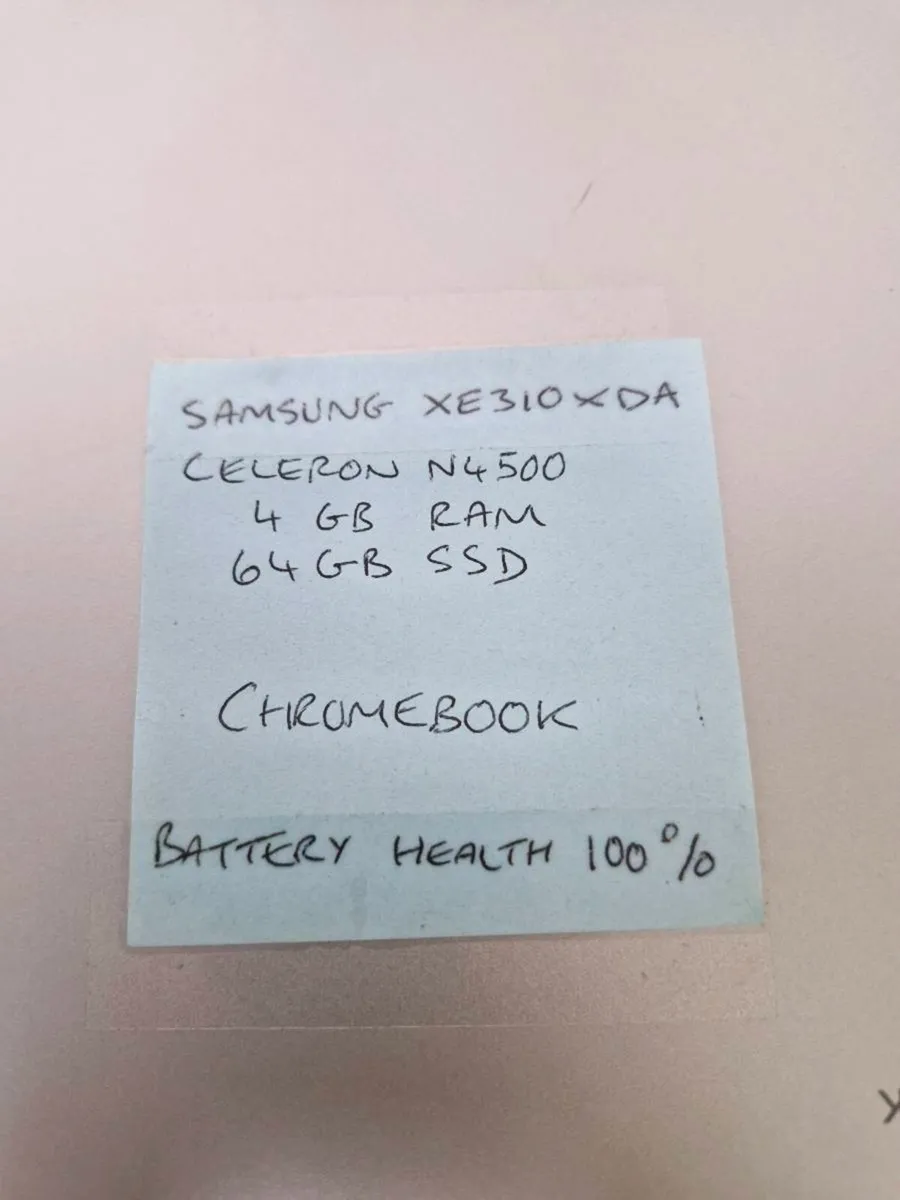 SAMSUNG XE310XDA
CELERON N4500
4 GB RAM
64GB SSD
CHROMEBOOK
BATTERY HEALTH 100%